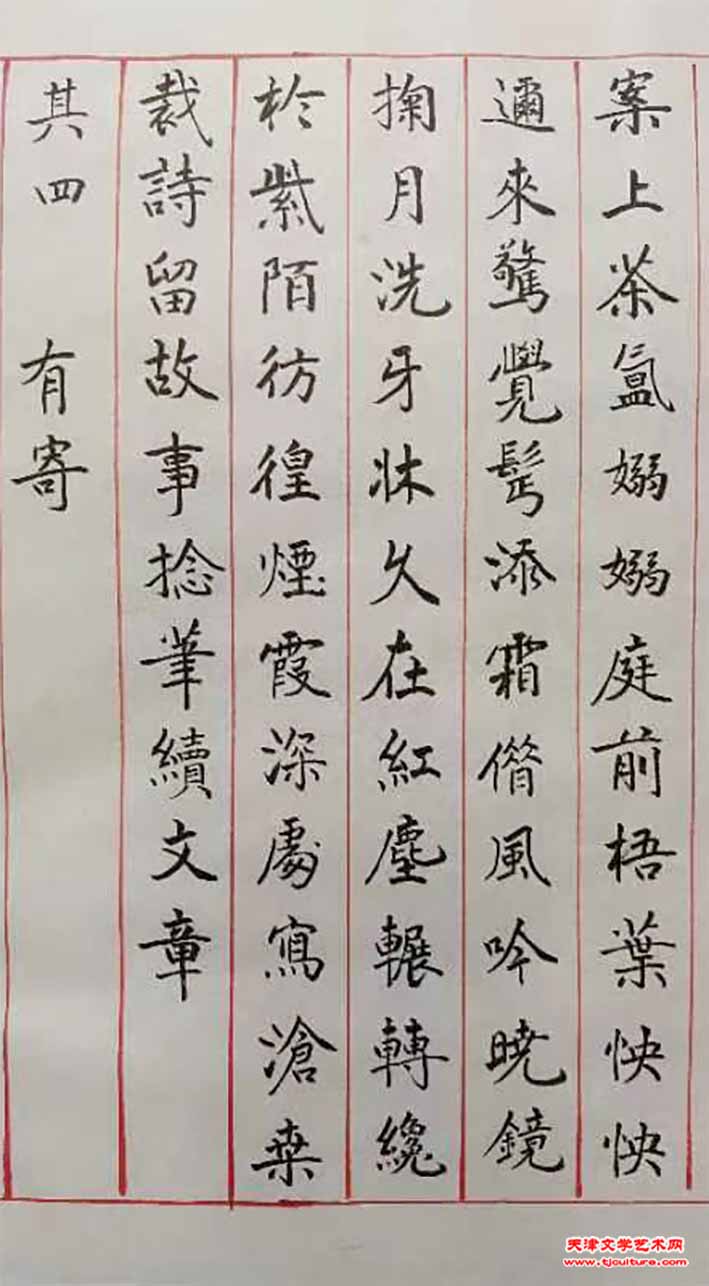 案上茶氳嫋嫋庭前梧葉怏怏
邇來驚覺髩添霜僭風吟曉鏡
掬月洗牙牀久在紅塵輾轉纔
於紫陌彷徨煙霞深處寫滄桒
裁詩留故事捻筆續文章
其四 有寄
天津文学艺术网
www.tjculture.com